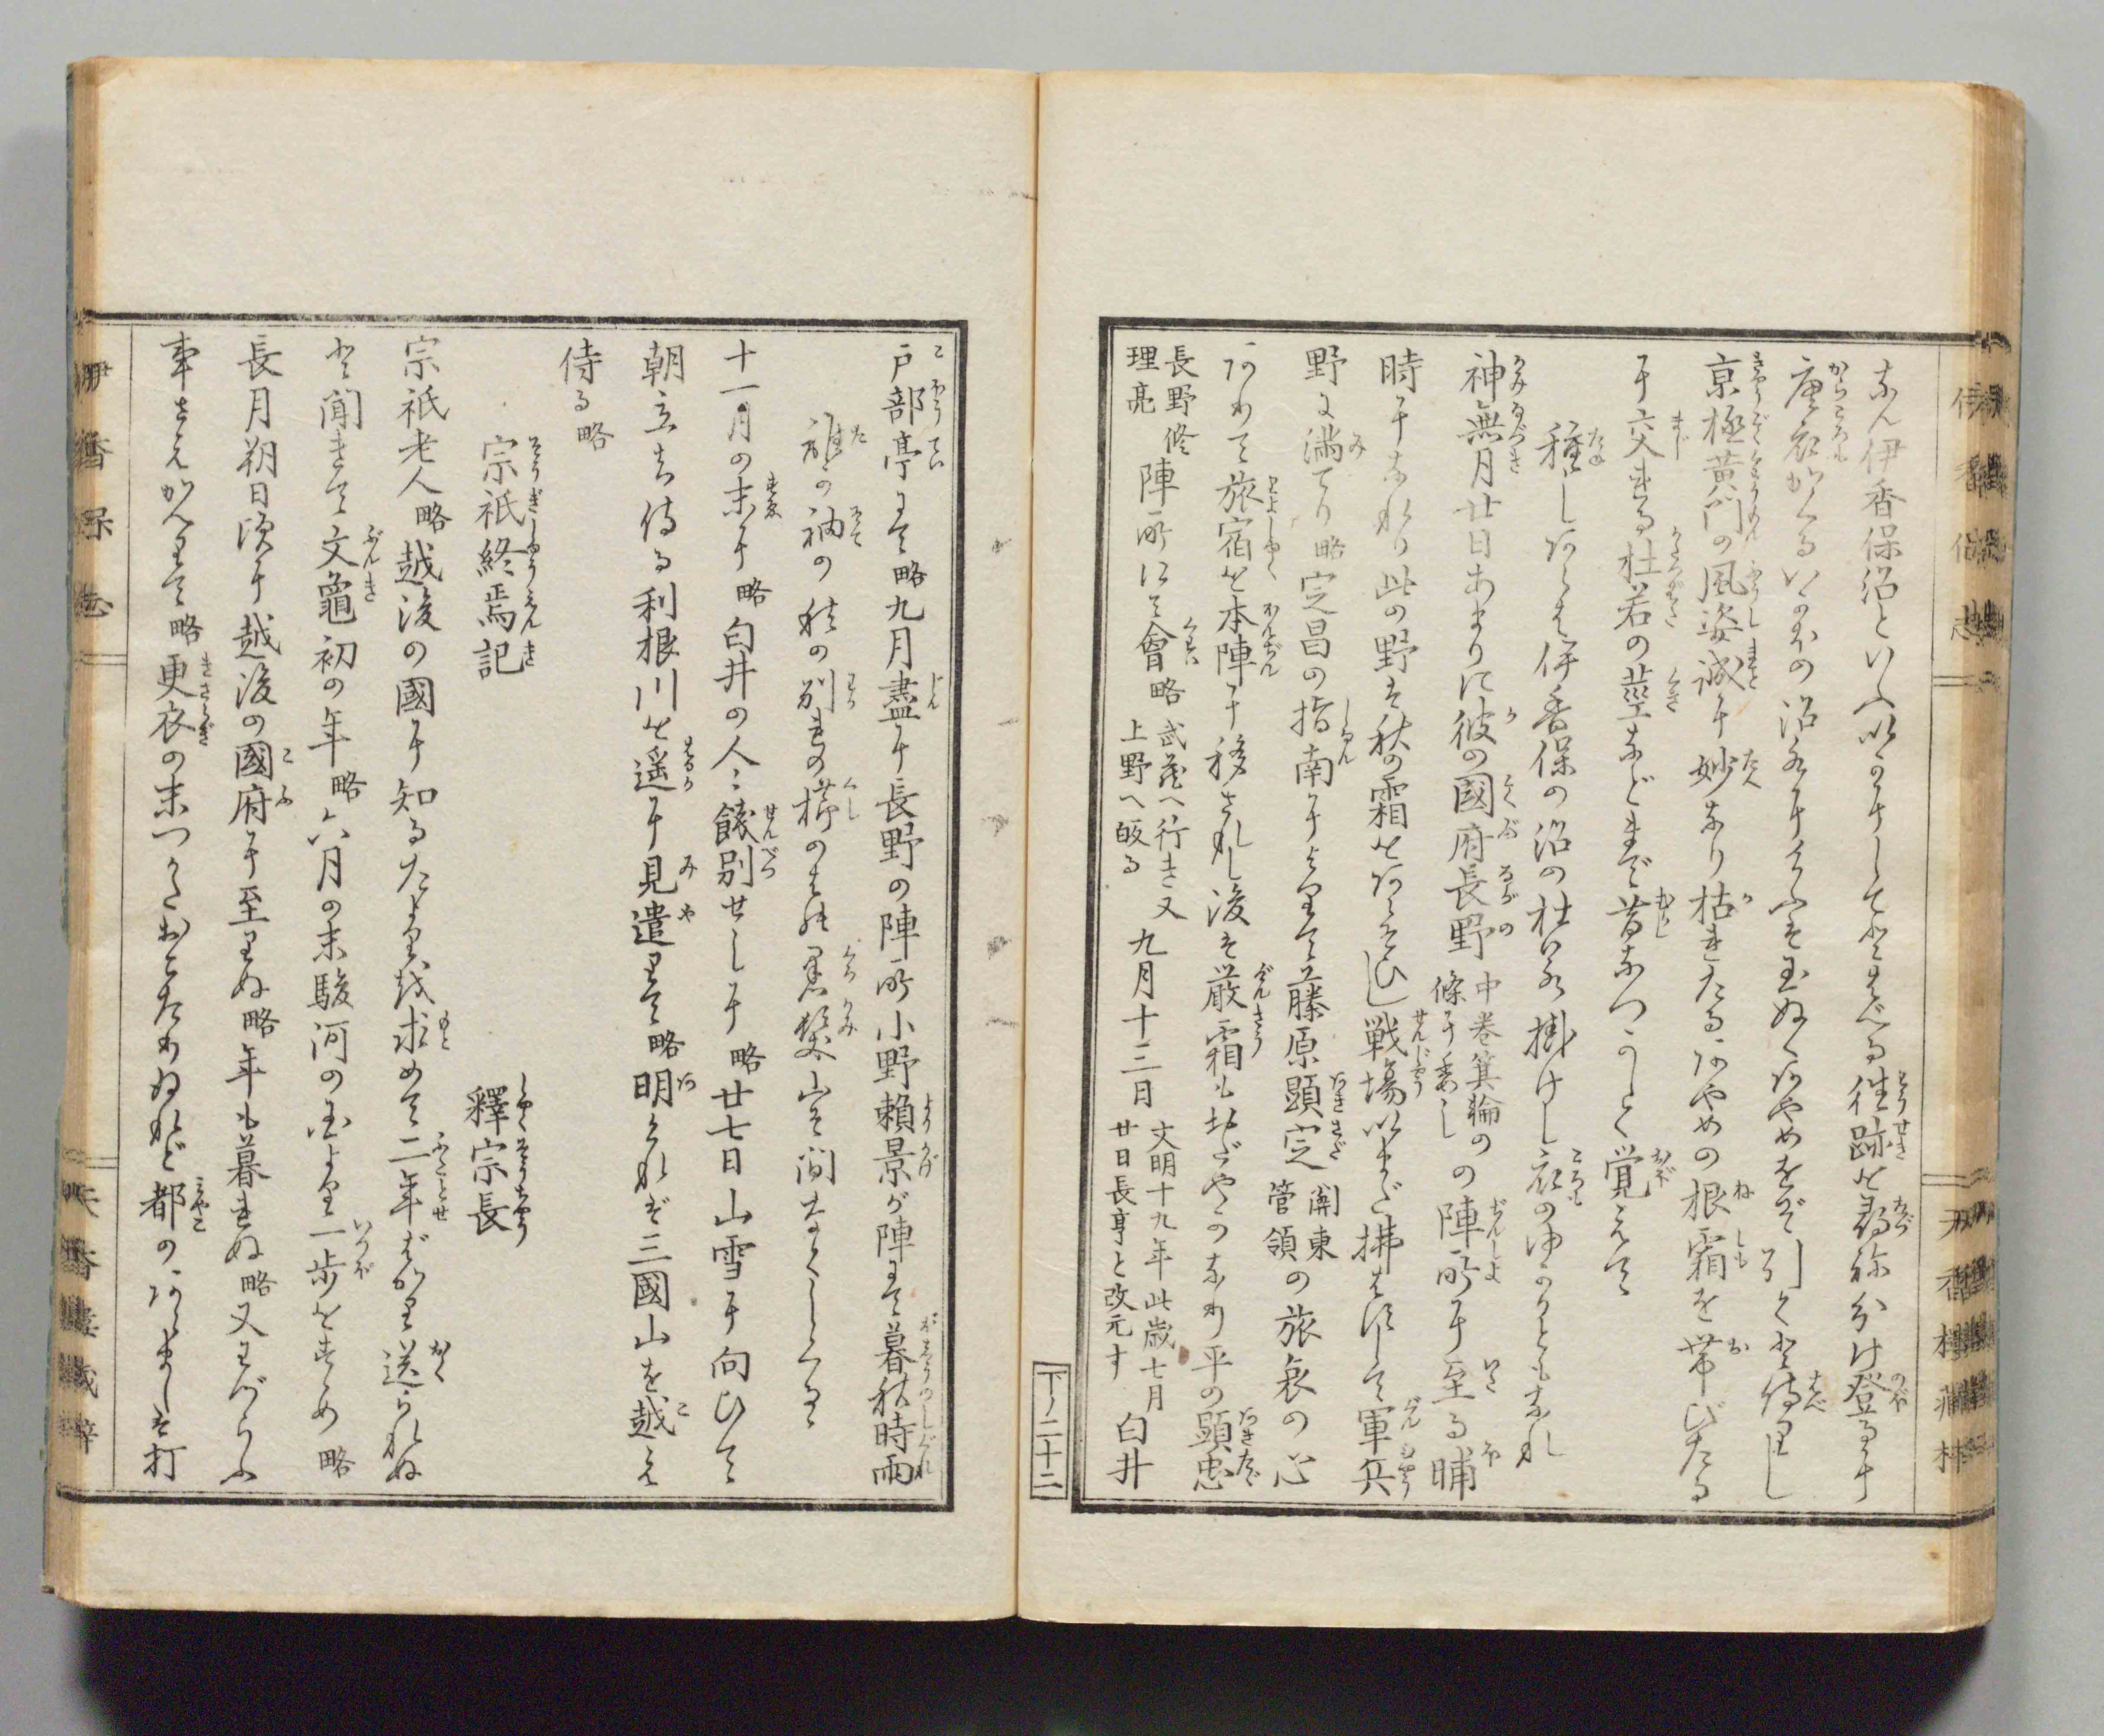 なん伊香保沼といふいかにしてととへる往跡を尋ね分け登るに
唐衣かくるいかほの沼水にけふは玉ぬくあやめをぞ引くと侍りし
京極黄門の風姿誠に妙なり枯れたるあやめの根霜を帯びたる
に交れる杜若の莖などまで昔なつかしく覚えて
種しあらば伊香保の沼の杜若掛けし衣のゆかりともなれ
神無月廿日あまりに彼の國府長野
中巻箕輪の
條に委し
の陣所に至る晡
時になれり此の野は秋の霜をあらそひし戦場いまだ拂はずして軍兵
野に満てり略定昌の指南によりて藤原顕定
関東
管領
の旅哀の心
あめて旅宿を本陣に移されし後は厳霜もおだやかなり平の顕忠
長野修
理亮
陣所にて會略
武蔵へ行き又
上野へ皈る
九月十三日
文明十九年此歳七月
廿日長享と改元す
白井
下ノ二十二
戸部亭にて略九月盡に長野の陣所小野賴景が陣にて暮秋時雨
誰が袖の秋の別れの櫛のはの黒髪山ぞ間なくしぐるゝ
十一月の末に略白井の人〻餞別せしに略廿七日山雪に向ひて
朝立ち侍る利根川を遥に見遣りて略明くれば三國山を越え
侍る略
宗祇終焉記
釋宗長
宗祇老人略越後の國に知るたよりを求めて二年ばかり送られぬ
と聞きて文龜初の年略六月の末駿河の国より一歩をすゝめ略
長月朔日頃に越後の國府に至りぬ略年も暮れぬ略又わづらふ
事さえかへりて略更衣の末つかたおこたりぬれど都のあらましは打
伊香保志